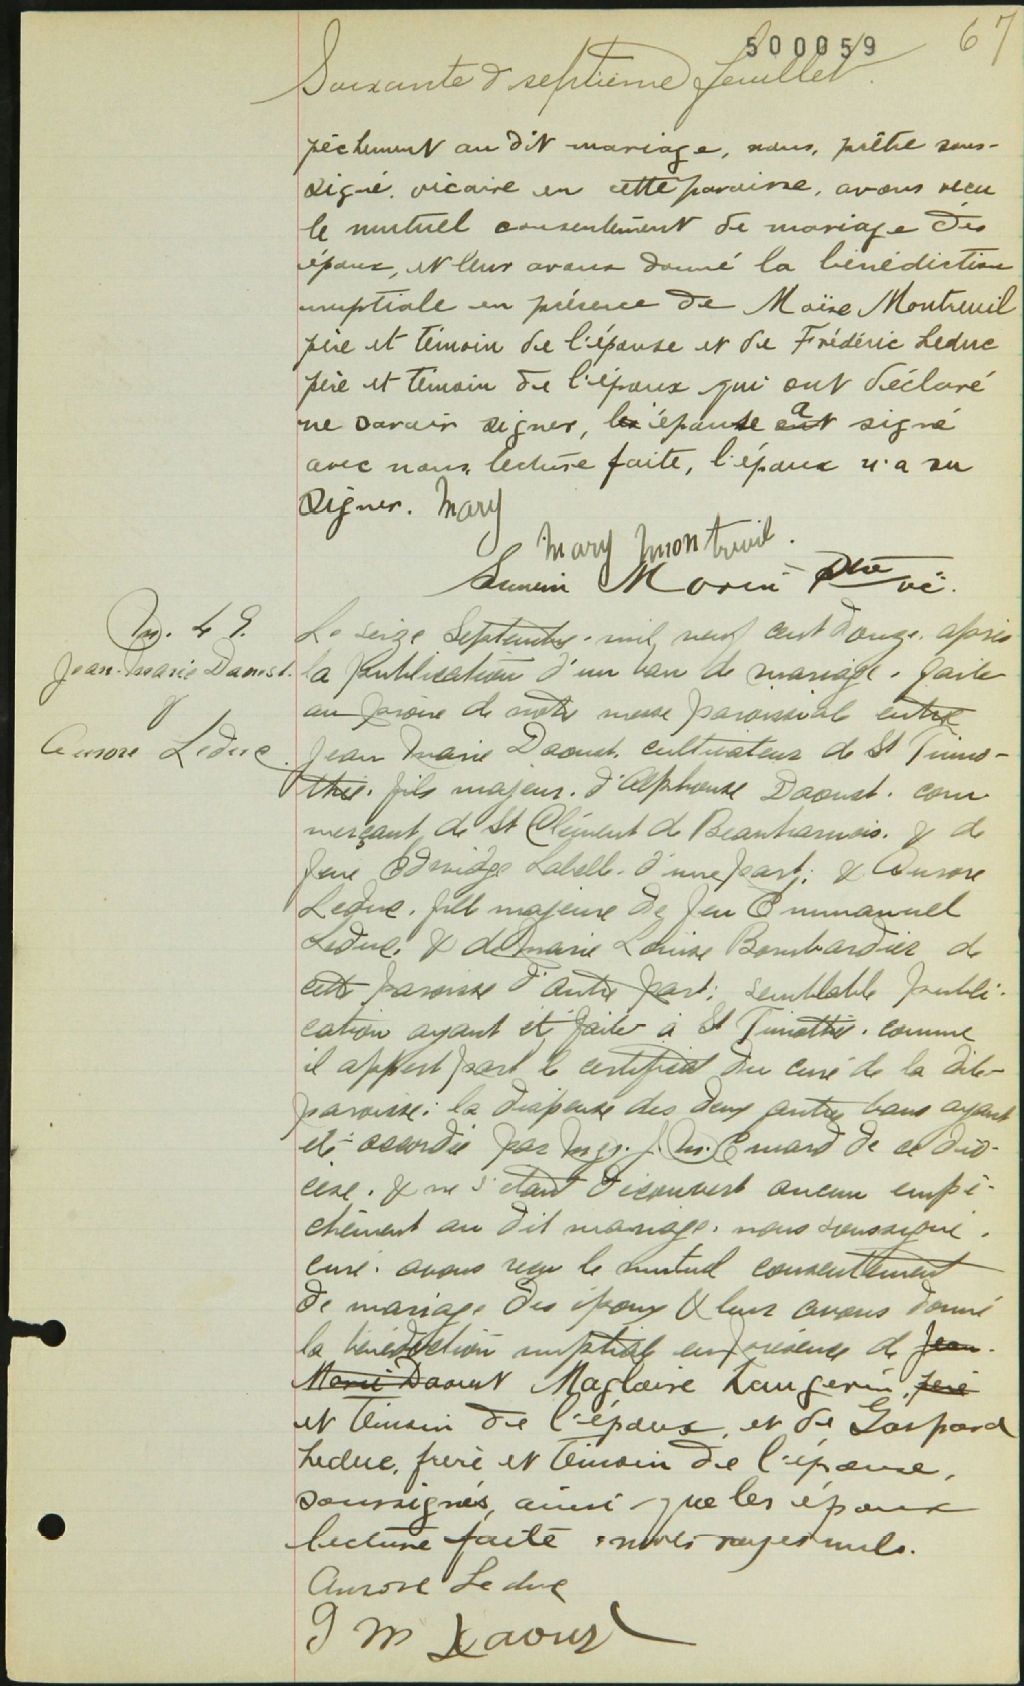 500059
67
Soixante & septième feuillet.
pêchement au dit mariage, nous, prêtre sous-
signé, vicaire en cette paroisse, avons recu
le mutuel consentement de mariage des
époux, et leur avons donné la bénédiction
nuptiale en présence de Moïse Montreuil
père et témoin de l'épouse et de Frédéric Leduc
père et témoin de l'époux qui ont déclaré
ne savoir signer, l'épouse a signé
avec nous, lecture faite, l'époux n'a su
signer. Mary
Mary Montreuil.
Morin Ptre vic.
M. 49.
Jean-Marie Daoust.
&
Aurore Leduc.
Le seize Septembre, mil neuf cent douze, après
la publication d'un ban de mariage, faite
au prône de notre messe paroissiale entre
Jean Marie Daoust, cultivateur de St Timo-
thée, fils majeur, d'Alphonse Daoust, com-
merçant, de St Clément de Beauharnois, & de
feue Edwidge Labelle, d'une part; & Aurore
Leduc, fille majeure de feu Emmanuel
Leduc, & de Marie Louise Bombardier de
cette paroisse d'autre part; semblable publi-
cation ayant été faite à St Timothée, comme
il appert par le certificat du curé de la dite
paroisse; la dispense des deux autres bans ayant
été accordée par Mgr. J. M. Emard de ce dio-
cèse, & ne s'étant découvert aucun empê-
chement au dit mariage, nous soussigné,
curé, avons reçu le mutuel consentement
de mariage des époux & leur avons donné
la bénédiction nuptiale en présence de Jean-
Marie Daoust Magloire Laugevin, père
et témoin de l'époux, et de Gaspard
Leduc, frère et témoin de l'épouse,
soussignés, ainsi que les époux
lecture faite, mots rayés nuls.
Aurore Leduc
J M Daoust